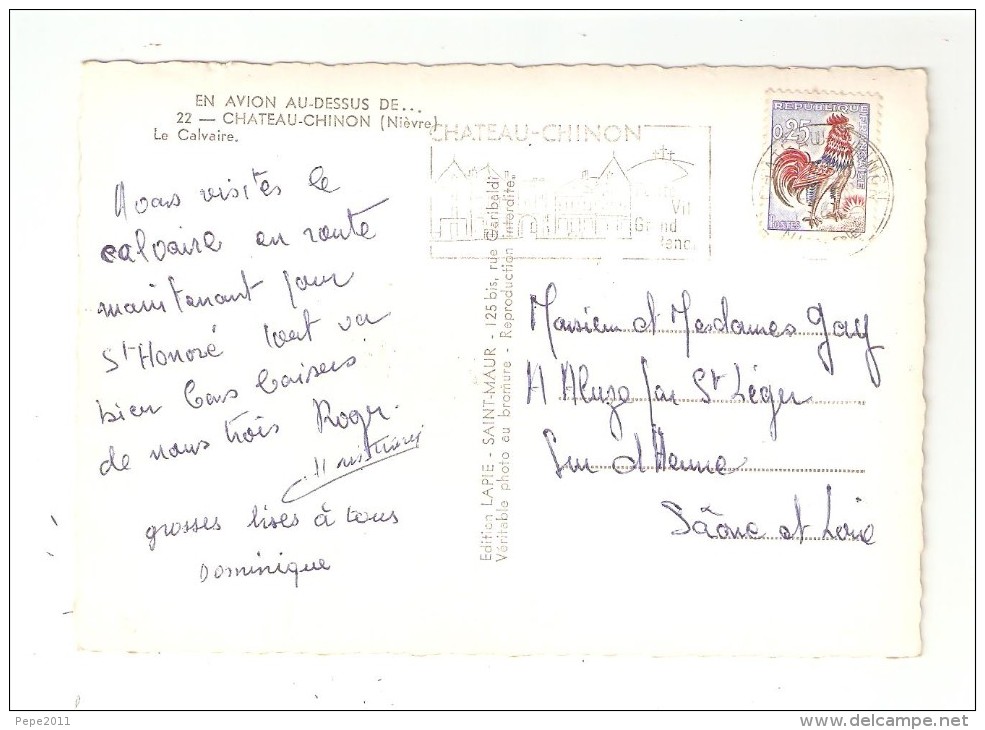 EN AVION AU-DESSUS DE...
22 — CHATEAU-CHINON (Nièvre)
Le Calvaire.
Nous visités le
calvaire en route
maintenant pour
St Honoré tout va
bien bons baisers
de nous trois Roger.
grosses bises à tous
Dominique
Edition LAPIE - SAINT-MAUR - 125 bis, rue Garibaldi
Véritable photo au bromure - Reproduction interdite.
CHATEAU-CHINON
Grand
REPUBLIQUE FRANCAISE
0,25
POSTES
Monsieur et Mesdames Gay
A Aluze par St Léger
Sur d'Heune
Sâone et Loire
Pepe2011
www.delcampe.net